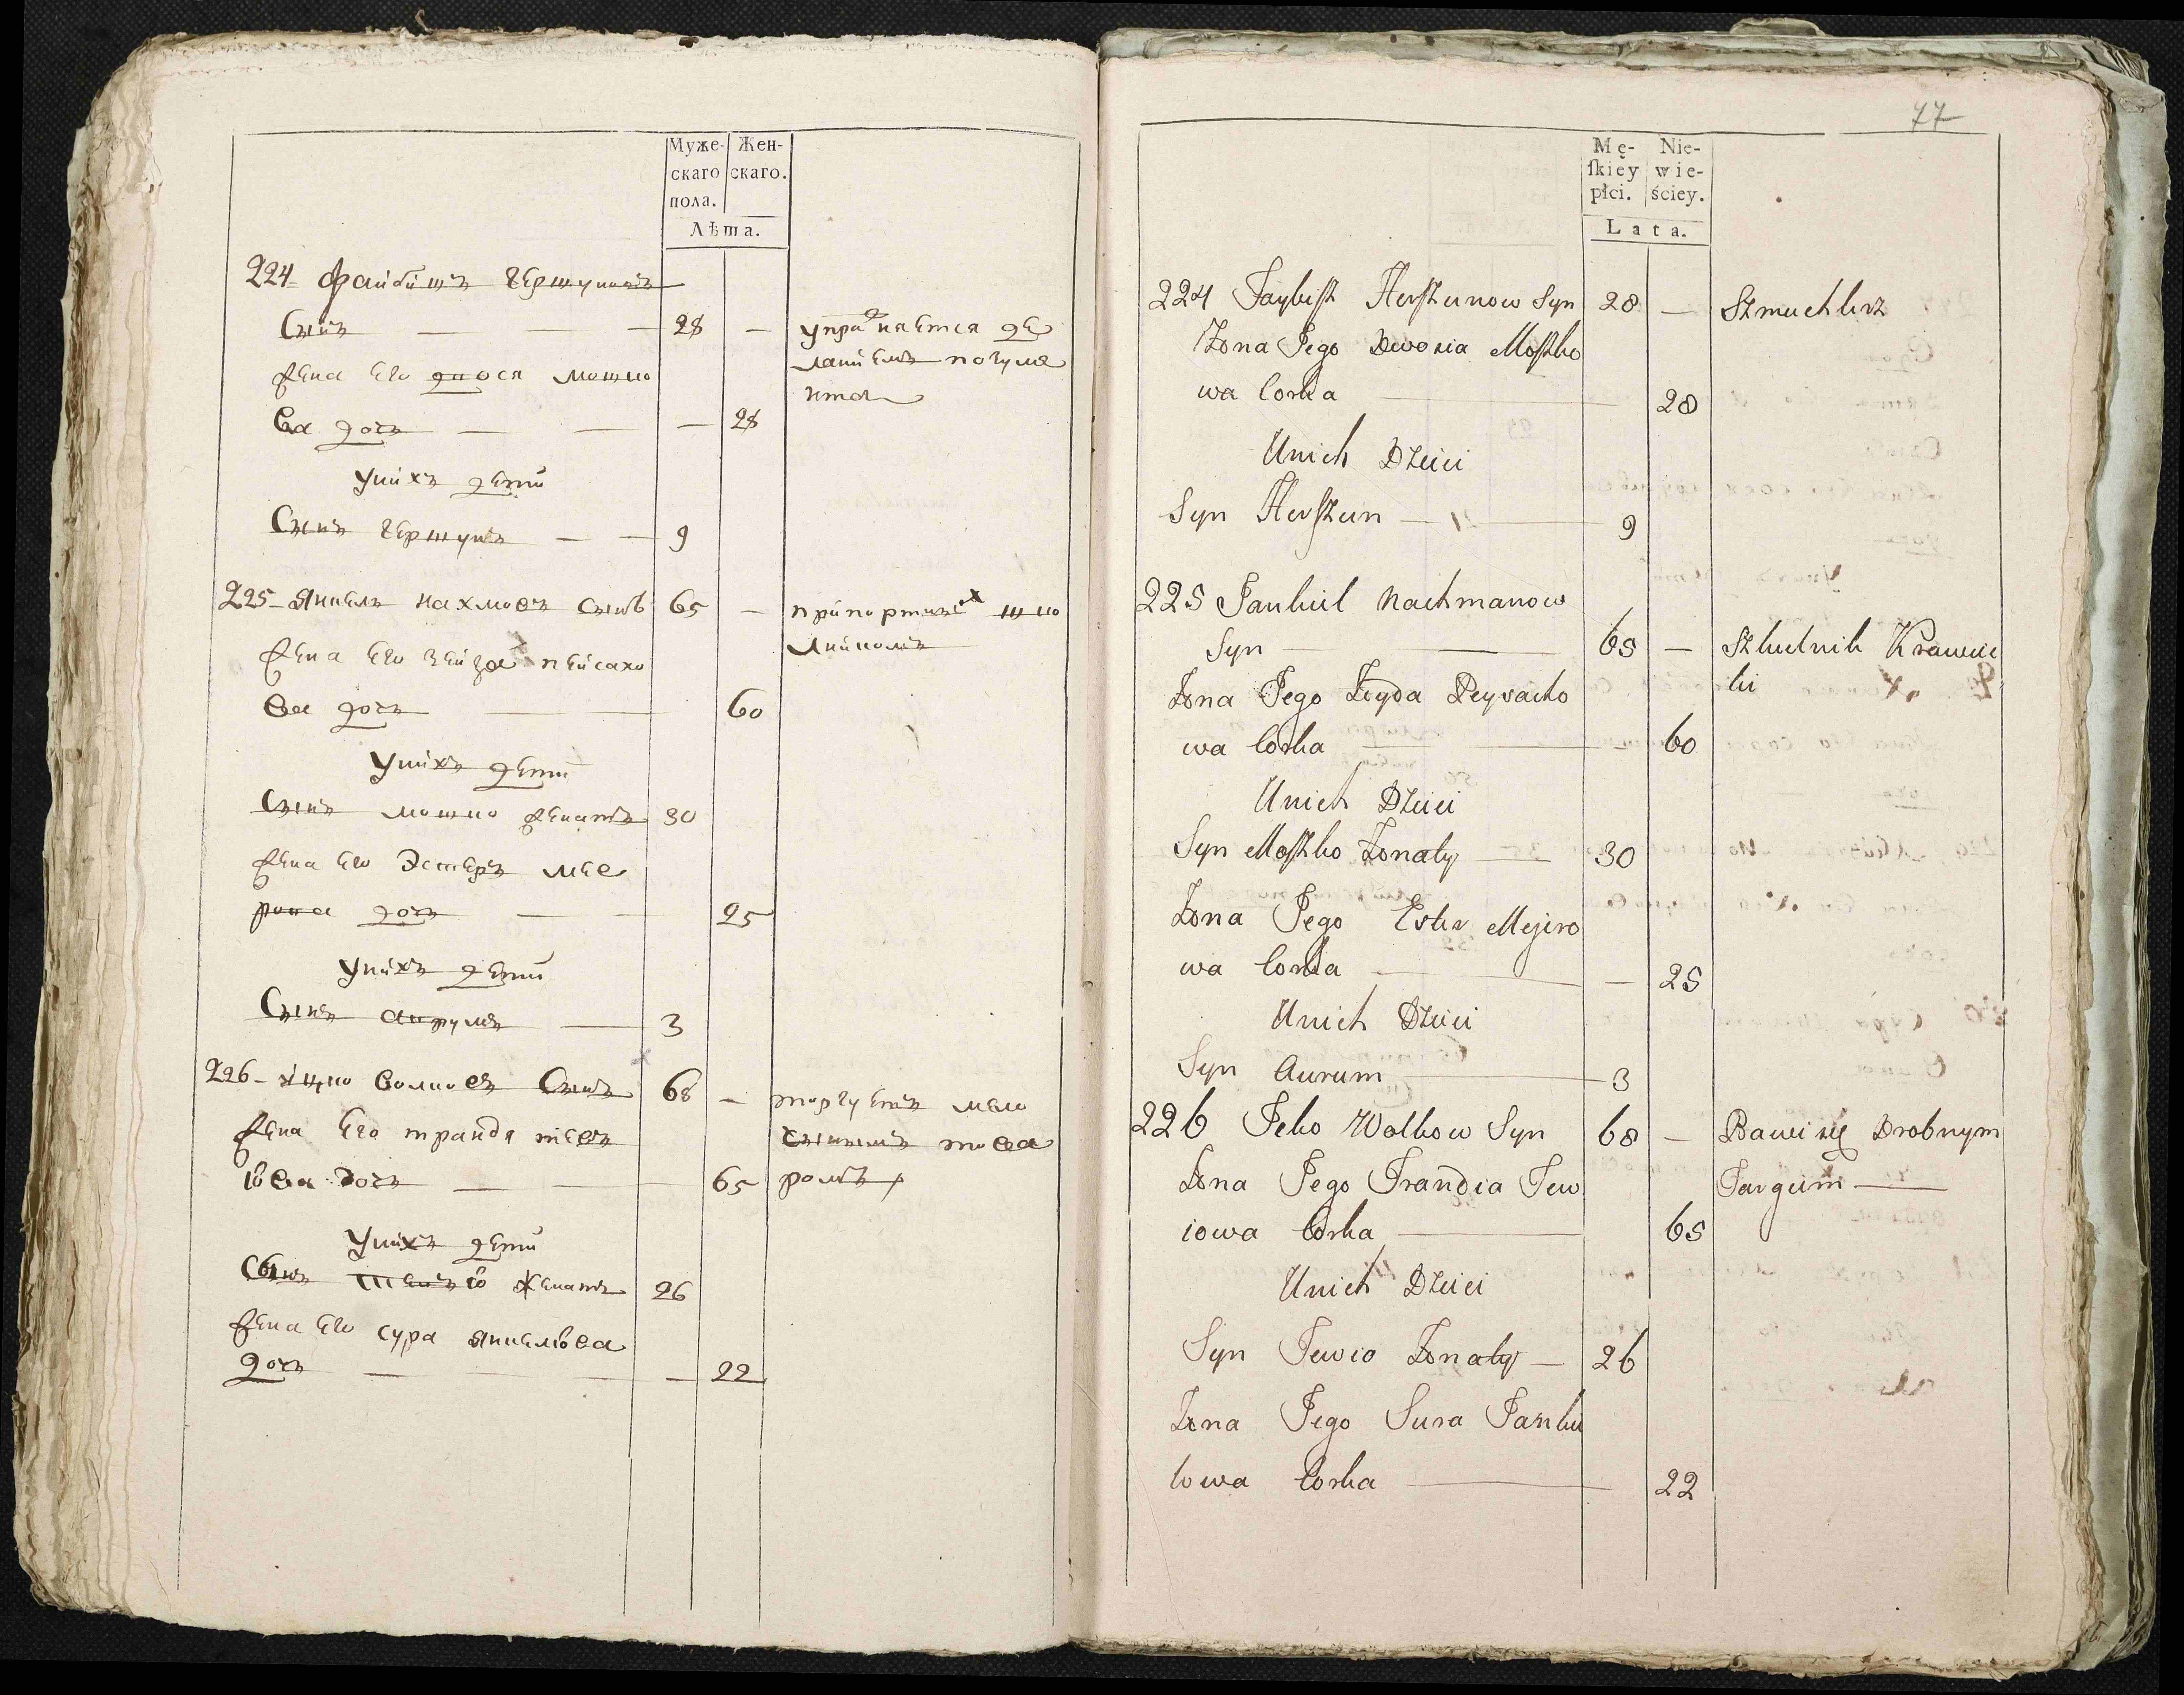 Муже-
скаго
пола.
Жен-
скаго.
Лѣта.
224- файбишъ гершуновъ
Сынъ — — — 28 — упра
няется де
Жена Его двося мошко
ва дочь — — — 28
Унихъ дети
Сынъ гершунъ — — 9
225- Янкель нахмовъ сынъ 65 —
Жена Его зейда пейсахо
ва дочь — 60
Унихъ дети
Сынъ мошко женатъ 30
Жена Его Эстеръ мее
рова дочь — — 25
Унихъ дети
Сынъ аврумъ — 3
226- ицко волковъ Сынъ 68 — торгуетъ мело
чнымъ това
Жена Его трайдя тевъ
іова дочь — — 65 ромъ
Унихъ дети
Сынъ тевіо женатъ 26
Жена Его сура янкелюва
дочь — — — — 22
77
Mę-
ſkiéy
płci.
Nie-
wie-
ściey.
Lata.
224 Faybiſz Herſzunow Syn 28 — Szmuchlerz
Żona Jego Dwosia Moſzko
wa Corka — 28
Unich Dzieci
Syn Herſzun — 9
225 Jankiel Nachmanow
Syn — — 65 — Szkudnik Krawiec
ki
Żona Jego Zeyda Peysacho
wa Corka — — 60
Unich Dzieci
Syn Moſzko Żonaty — 30
Żona Jego Ester Mejero
wa Corka — — 25
Unich Dzieci
Syn Aurum — 3
226 Icko Wolkow Syn 68 — Bawi się Drobnym
Targiem —
Żona Jego Trandia Tew
iowa Corka — 65
Unich Dzieci
Syn Tewio Żonaty — 26
Żona Jego Sura Janke
lowa Corka — 22